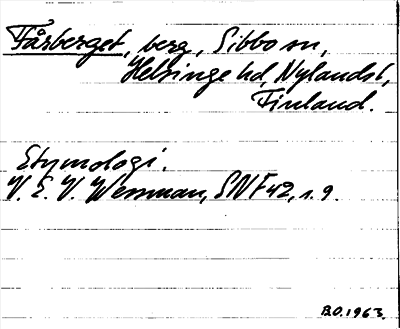 Fårberget, berg, Sibbo sn,
Helsinge hd, Nylands l,
Finland.
Etymologi.
V. E. V. Wessman, SNF 42, s. 9.
B.O. 1963.